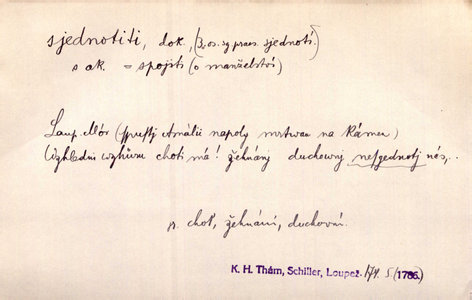 sjednotiti, dok., (3. os. sg. praes. sjednotí.)
s ak. = spojiti (o manželství)
Loup. Mór (spustj Amálii napoly mrtwau na Kámen)
Wzhledni wzhůru choti má! žehnánj duchownj nesgednotj nás,..
v. choť, žehnání, duchovní.
K. H. Thám, Schiller, Loupež. 174. 5. (1786.)